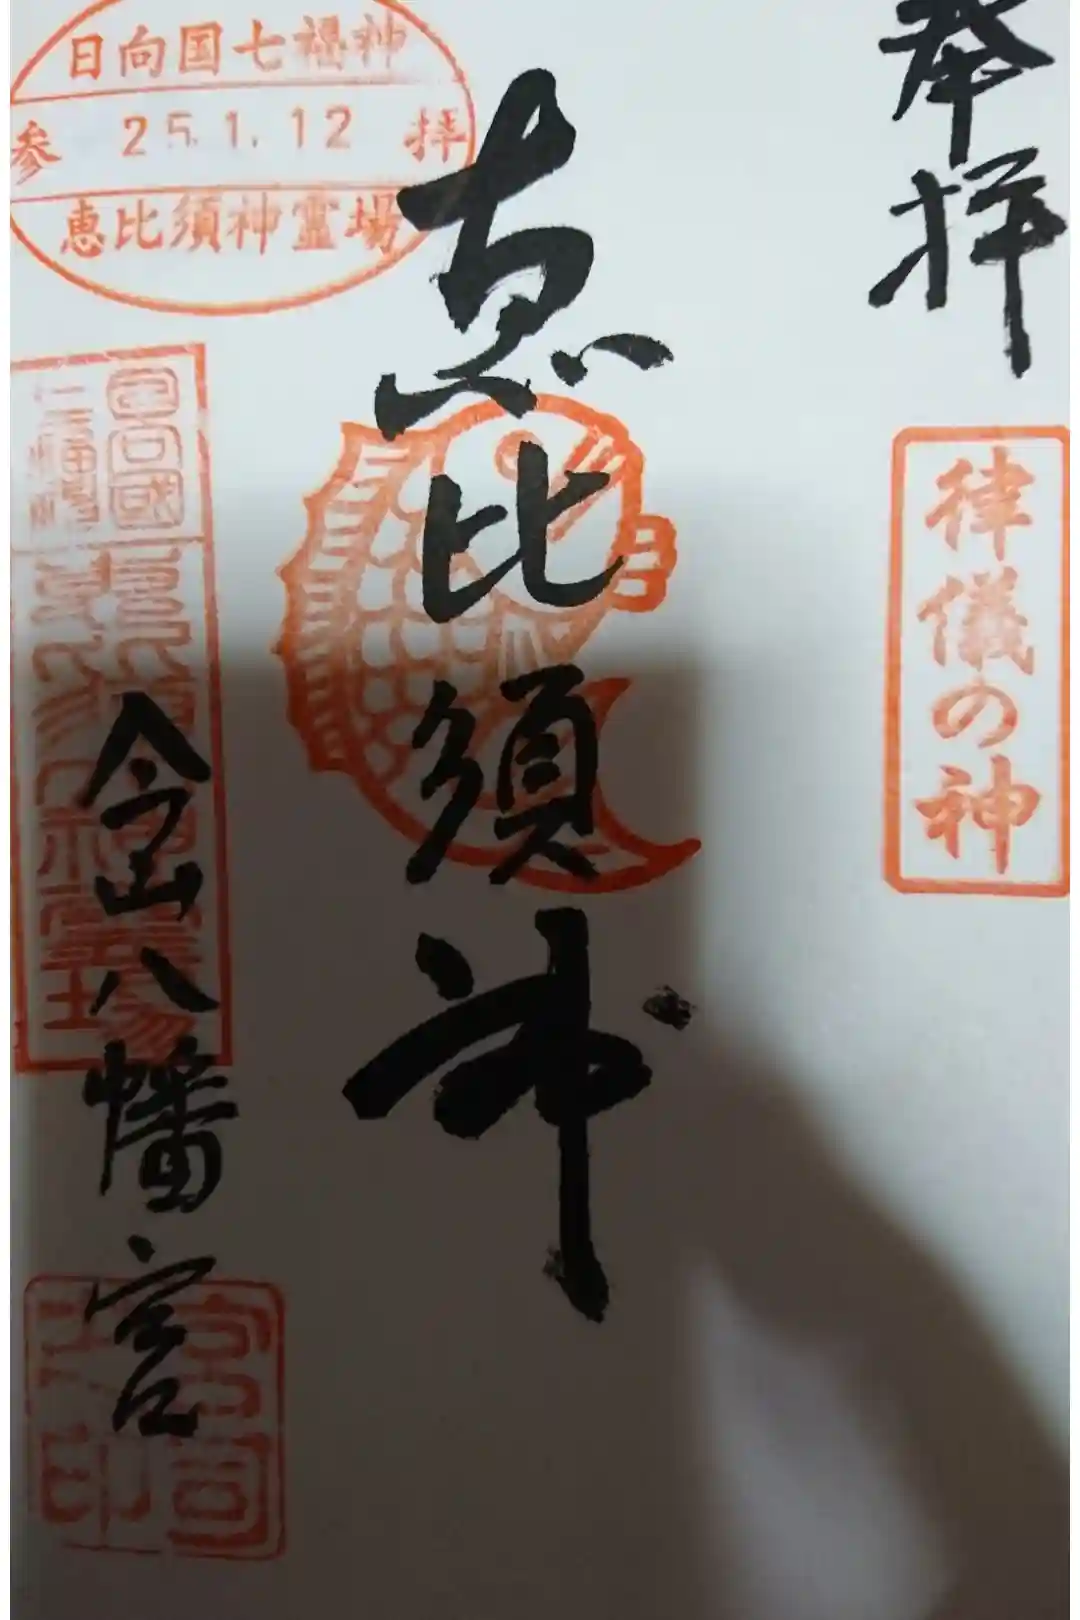 奉拝
律儀の神
恵比須神
日向国七福神
参 25.1.12 拝
恵比須神霊場
今山八幡宮
宮司之印